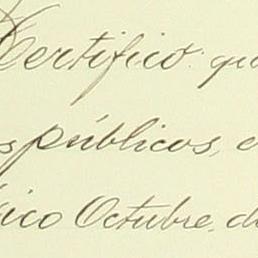 Certifico: qu
s públicos, e
ico Octubre, d